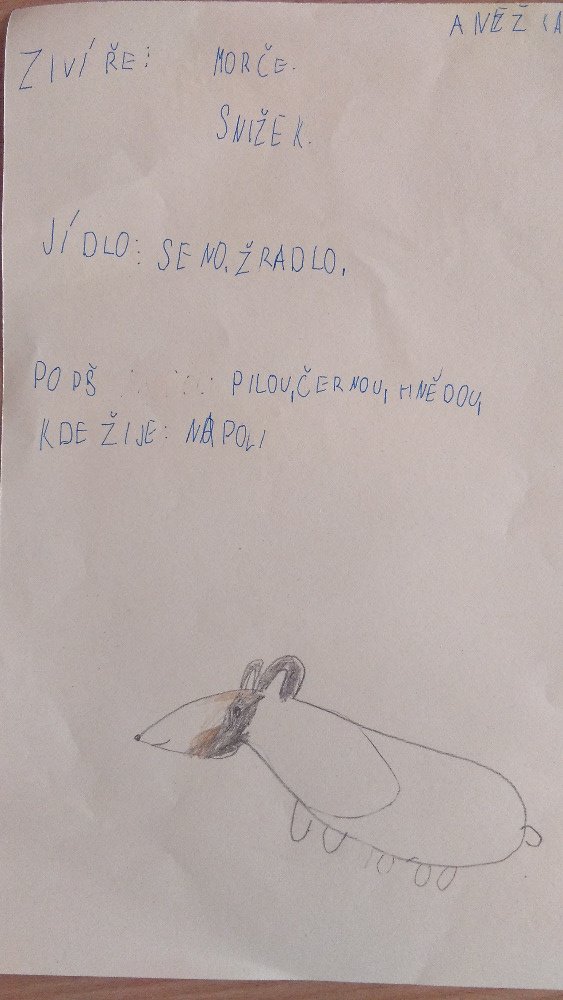 ANĚŽKA
ZIVÍŘE: MORČE.
SNIŽEK.
JÍDLO: SENO. ŽRADLO.
PODŠ PILOU, ČERNOU, HNĚDOU,
KDE ŽIJE: NAPOLI